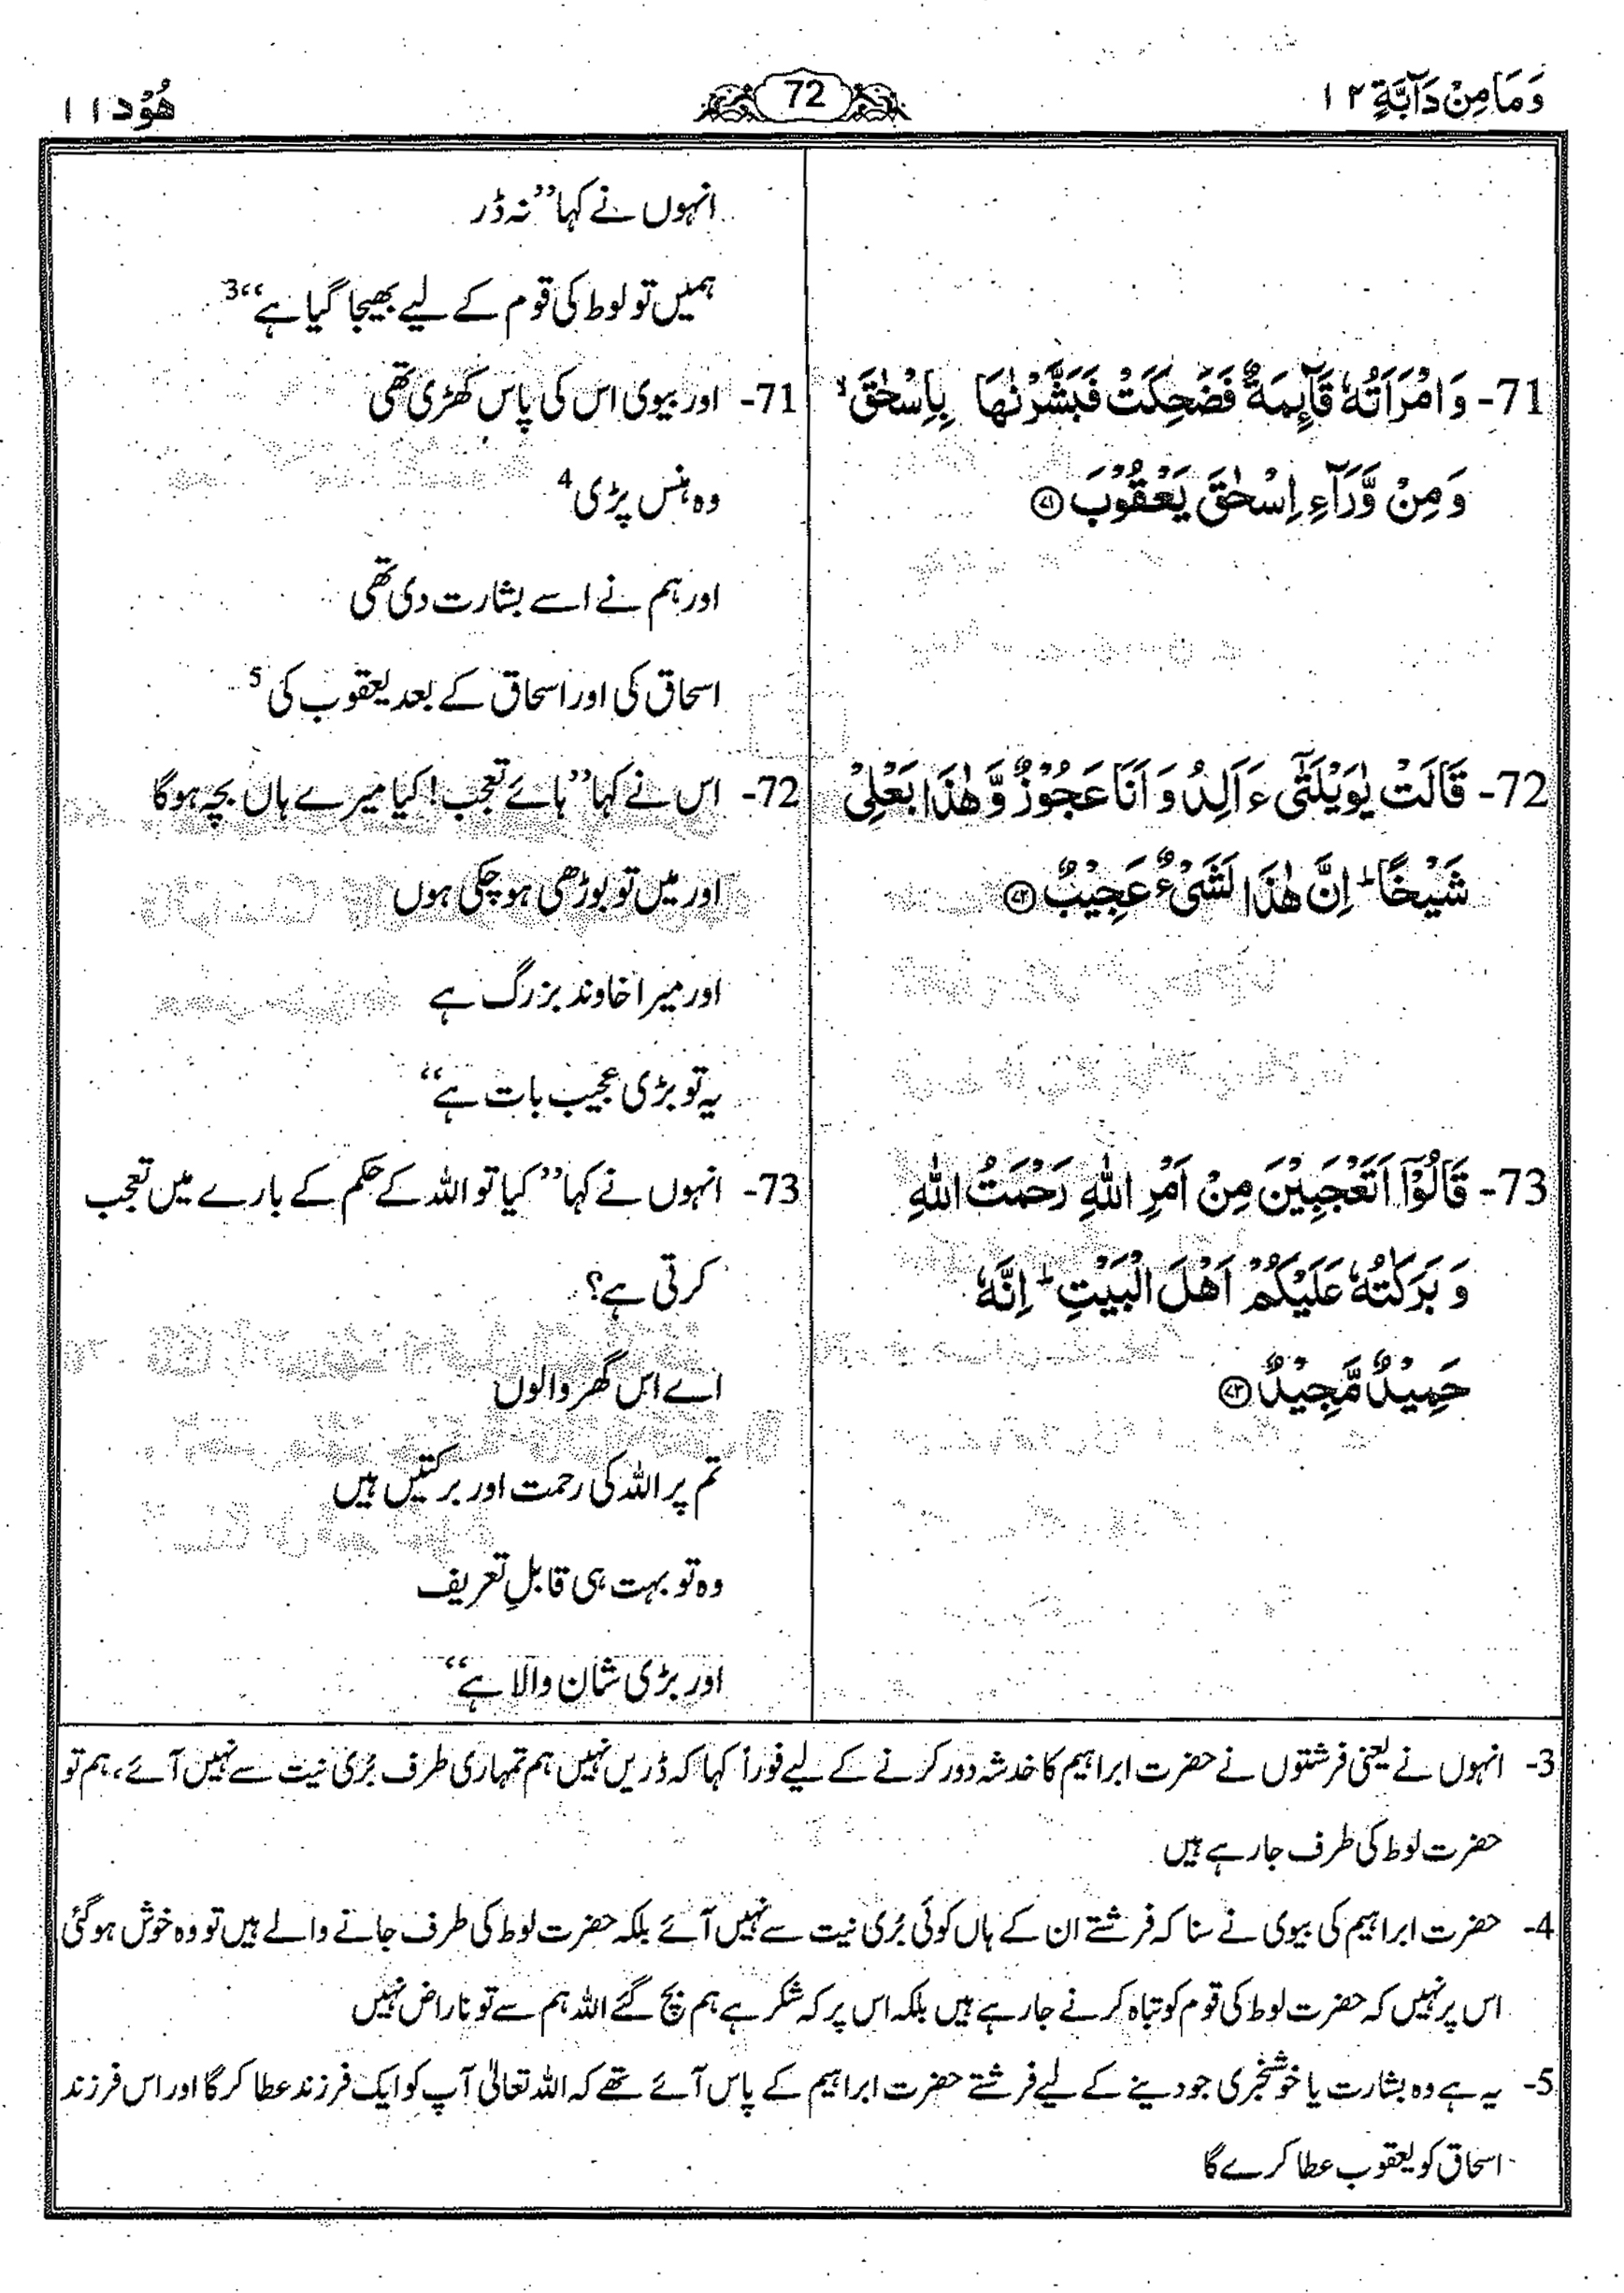 وَمَا مِنْ دَآبَّةٍ ۱۲
72
هُوْد ۱۱
71- وَ امْرَاَتُهٗ قَآىِٕمَةٌ فَضَحِكَتْ فَبَشَّرْنٰهَا بِاِسْحٰقَ ۙ
وَ مِنْ وَّرَآءِ اِسْحٰقَ یَعْقُوْبَ ﴿۷۱﴾
72- قَالَتْ یٰوَیْلَتٰۤی ءَاَلِدُ وَ اَنَا عَجُوْزٌ وَّ هٰذَا بَعْلِیْ
شَیْخًا ؕ اِنَّ هٰذَا لَشَیْءٌ عَجِیْبٌ ﴿۷۲﴾
73- قَالُوْۤا اَتَعْجَبِیْنَ مِنْ اَمْرِ اللّٰهِ رَحْمَتُ اللّٰهِ
وَ بَرَكٰتُهٗ عَلَیْكُمْ اَهْلَ الْبَیْتِ ؕ اِنَّهٗ
حَمِیْدٌ مَّجِیْدٌ ﴿۷۳﴾
انہوں نے کہا’’نہ ڈر
ہمیں تو لوط کی قوم کے لیے بھیجا گیا ہے‘‘3
71- اور بیوی اس کی پاس کھڑی تھی
وہ ہنس پڑی4
اور ہم نے اسے بشارت دی تھی
اسحاق کی اور اسحاق کے بعد یعقوب کی5
72- اس نے کہا’’ہائے تعجب! کیا میرے ہاں بچہ ہوگا
اور میں تو بوڑھی ہو چکی ہوں
اور میرا خاوند بزرگ ہے
یہ تو بڑی عجیب بات ہے‘‘
73- انہوں نے کہا’’کیا تو اللہ کے حکم کے بارے میں تعجب
کرتی ہے؟
اے اس گھر والوں
تم پر اللہ کی رحمت اور برکتیں ہیں
وہ تو بہت ہی قابلِ تعریف
اور بڑی شان والا ہے‘‘
3- انہوں نے یعنی فرشتوں نے حضرت ابراہیم کا خدشہ دور کرنے کے لیے فوراً کہا کہ ڈریں نہیں ہم تمہاری طرف بُری نیت سے نہیں آئے، ہم تو
حضرت لوط کی طرف جا رہے ہیں
4- حضرت ابراہیم کی بیوی نے سنا کہ فرشتے ان کے ہاں کوئی بُری نیت سے نہیں آئے بلکہ حضرت لوط کی طرف جانے والے ہیں تو وہ خوش ہوگئی
اس پر نہیں کہ حضرت لوط کی قوم کو تباہ کرنے جا رہے ہیں بلکہ اس پر کہ شکر ہے ہم بچ گئے اللہ ہم سے تو ناراض نہیں
5- یہ ہے وہ بشارت یا خوشخبری جو دینے کے لیے فرشتے حضرت ابراہیم کے پاس آئے تھے کہ اللہ تعالیٰ آپ کو ایک فرزند عطا کرگا اور اس فرزند
اسحاق کو یعقوب عطا کرے گا